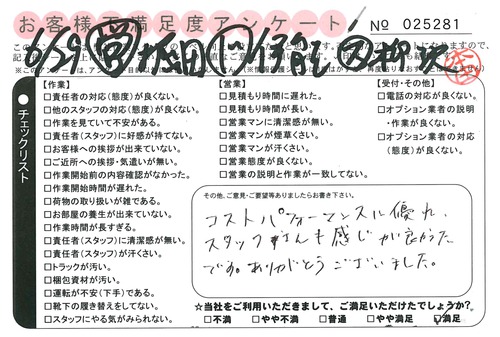 お客様不満足度アンケート
No 025281
チェックリスト
【作業】
□責任者の対応(態度)が良くない。
□他のスタッフの対応(態度)が良くない。
□作業を見ていて不安がある。
□責任者(スタッフ)に好感が持てない。
□お客様への挨拶が出来ていない。
□ご近所への挨拶・気遣いが無い。
□作業開始前の内容確認がなかった。
□作業開始時間が遅れた。
□荷物の取り扱いが雑である。
□お部屋の養生が出来ていない。
□作業時間が長すぎる。
□責任者(スタッフ)に清潔感が無い。
□責任者(スタッフ)が汗臭い。
□トラックが汚い。
□梱包資材が汚い。
□運転が不安(下手)である。
□靴下の履き替えをしてない。
□スタッフにやる気がみられない。
【営業】
□見積もり時間に遅れた。
□見積もり時間が長い。
□営業マンに清潔感が無い。
□営業マンが煙草くさい。
□営業マンが汗くさい。
□営業態度が良くない。
□営業の説明と作業が一致してない。
【受付・その他】
□電話の対応が良くない。
□オプション業者の説明
・作業が良くない。
□オプション業者の対応
(態度)が良くない。
その他、ご意見・ご要望等ありましたらお書き下さい。
コストパフォーマンスに優れ、
スタッフさんも感じが良かった
です。ありがとうございました。
☆当社をご利用いただきまして、ご満足いただけたでしょうか?
□不満 □やや不満 □普通 □やや満足 ☑満足